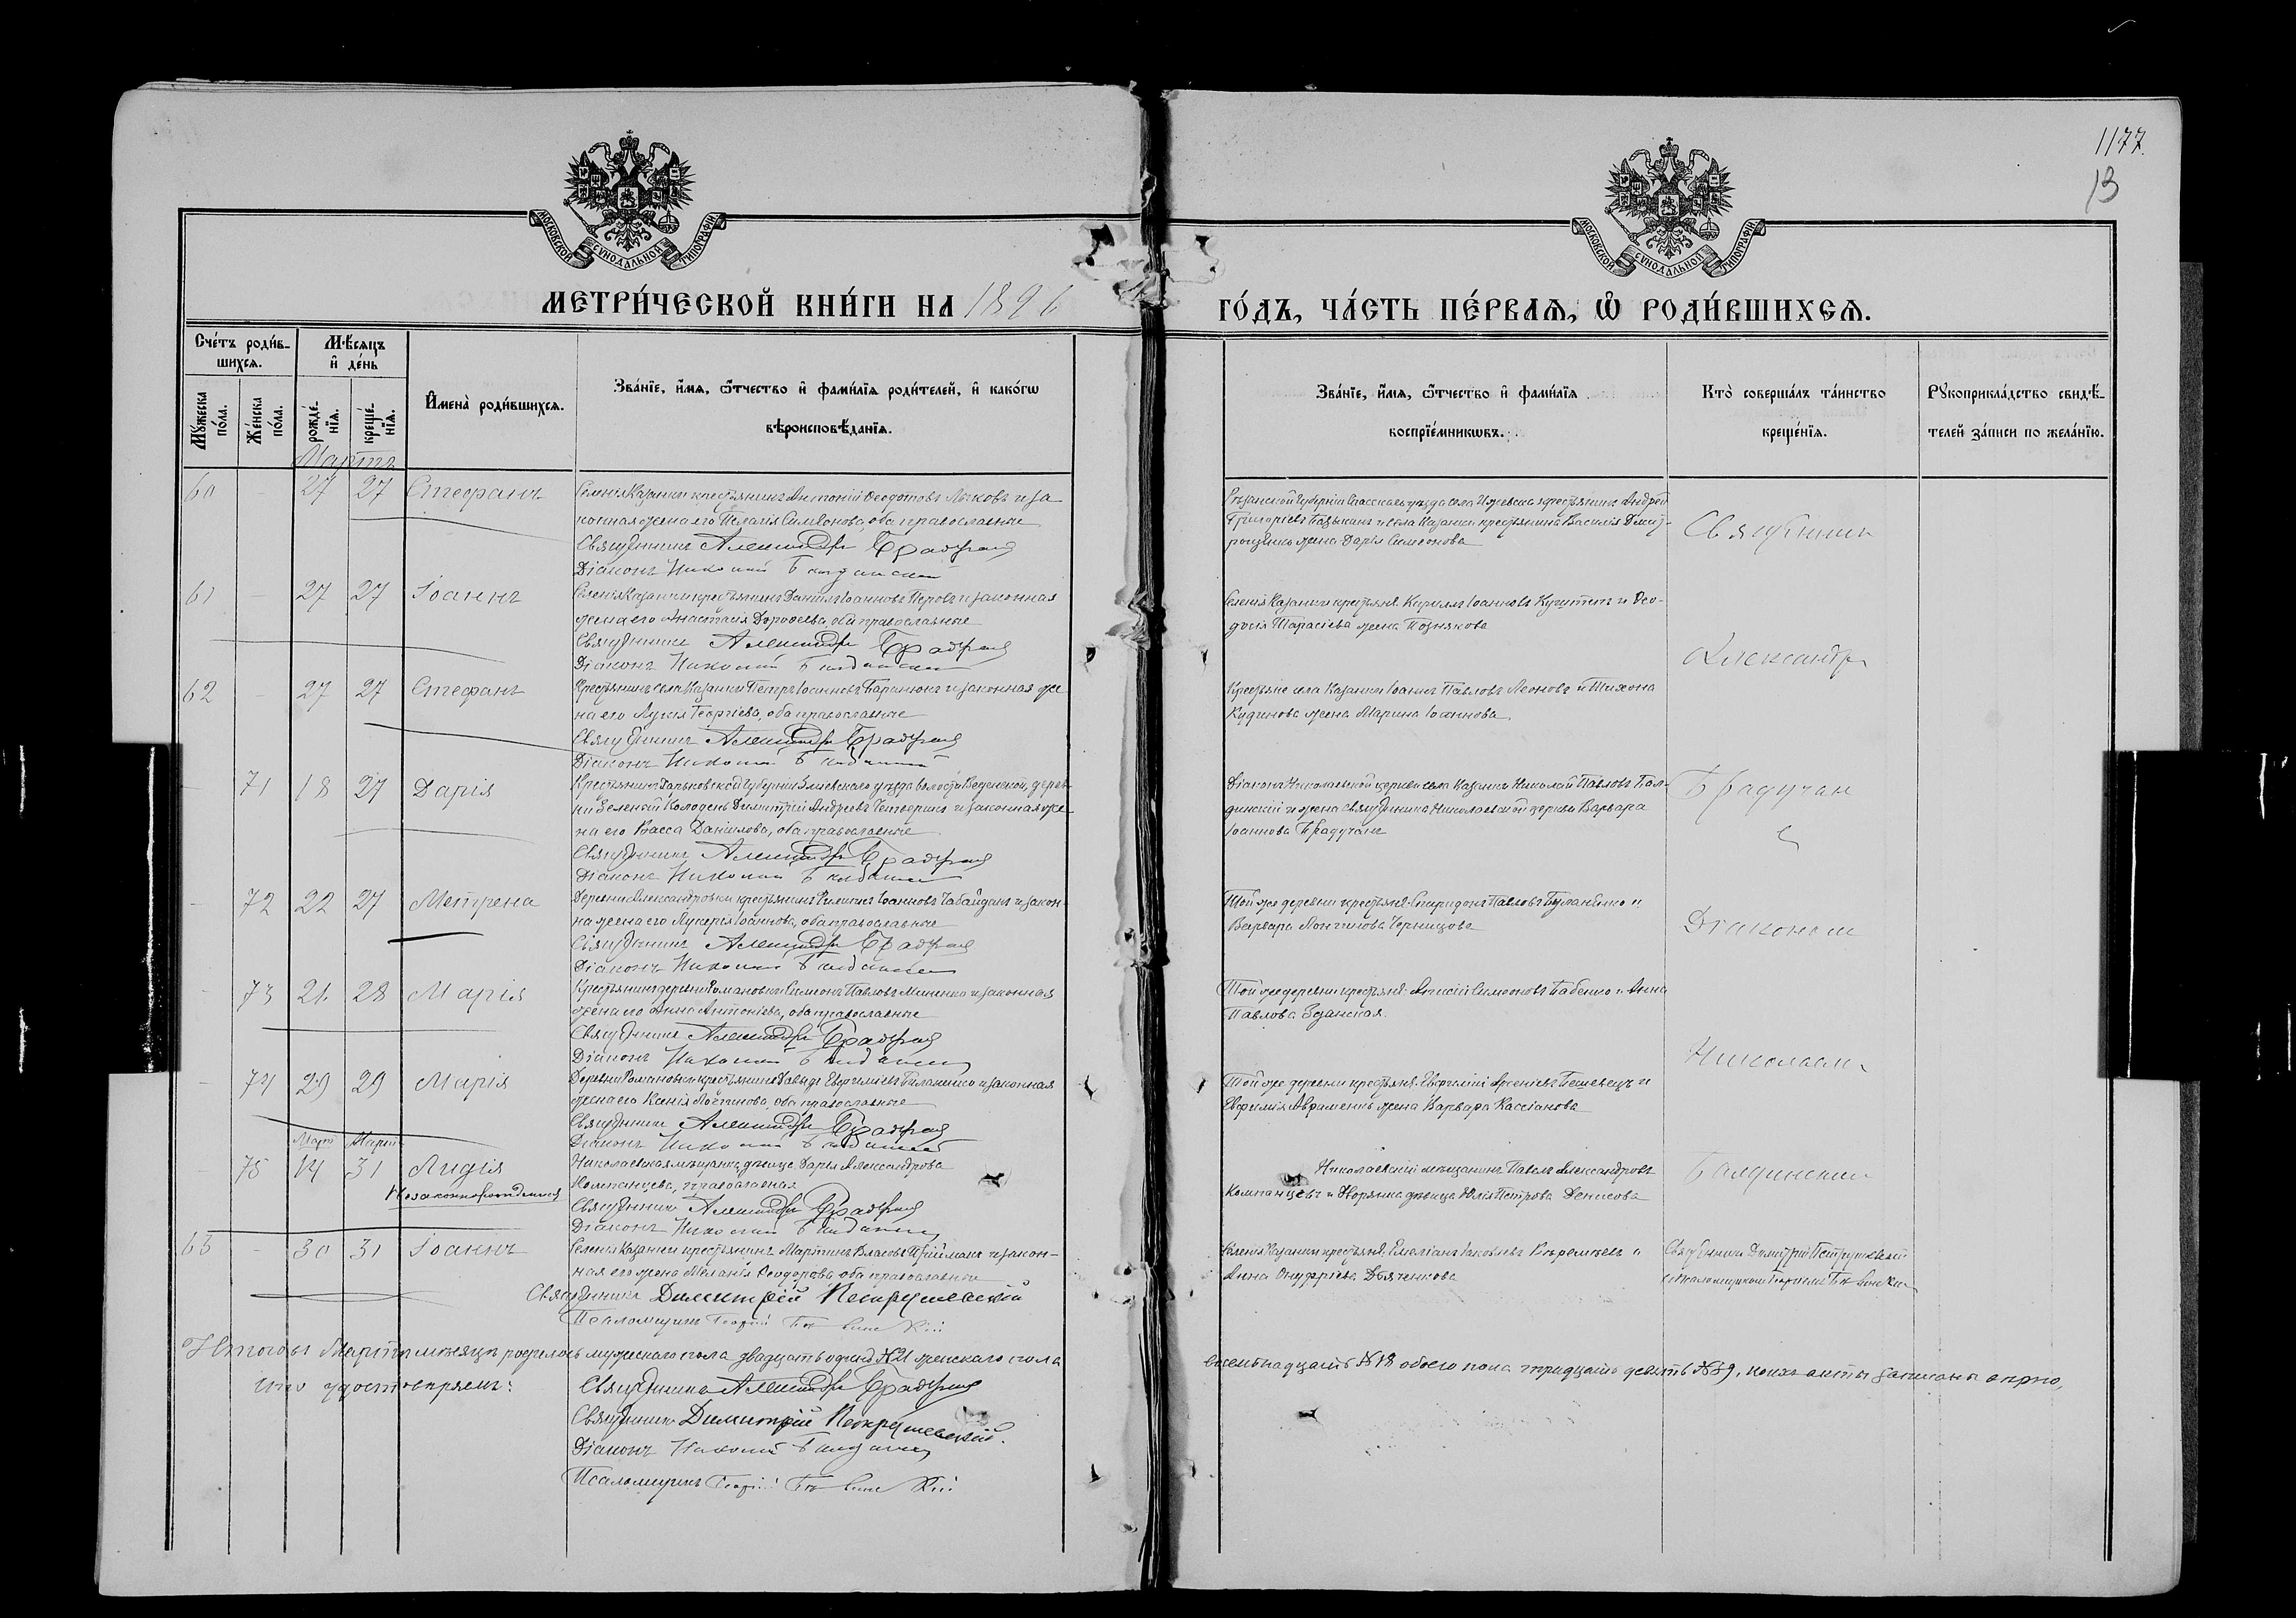 1177.
13
МОСКОВСКОЙ СѴНОДАЛЬНОЙ ТИПОГРАФІИ
МОСКОВСКОЙ СѴНОДАЛЬНОЙ ТИПОГРАФІИ
МЕТРИ́ЧЕСКОЙ КНИ́ГИ НА 1896
ГО́ДЪ, ЧА́СТЬ ПЕ́РВАѦ, Ѿ РОДИ́ВШИХСѦ.
Сче́тъ роди́в-
шихсѧ.
Мѣ́сяцъ
и҆ де́нь
Мꙋжеска по́ла.
Же́нска по́ла.
рожде́-
нїѧ.
креще́-
нїѧ.
И҆мена̀ роди́вшихсѧ.
Зва́нїе, и҆́мѧ, ѻ҆́тчество и҆ фами́лїѧ роди́телей, и҆ како́гѡ
вѣроисповѣ́данїѧ.
Зва́нїе, и҆́мѧ, ѻ҆́тчество и҆ фами́лїѧ
воспрїе́мникѡвъ.
Кто̀ соверша́лъ та́инство
креще́нїѧ.
Рꙋкоприкла́дство свидѣ́-
телей за́писи по жела́нїю.
Мартъ
60 - 27 27 Стефанъ
Селенія Казанки крестьянинъ Антоній Ѳеодотовъ Лычковъ и за
конная жена его Пелагія Симеонова, оба православные
Священникъ Александръ Брадучан
Діаконъ Николай Балдинский
Рязанской губерніи Спасскаго уѣзда села Ижевска крестьянинъ Андрей
Григорьевъ и села Казанки крестьянина Василія Дмит-
жена Дарія Симеонова
Священник
61 - 27 27 Іоаннъ
Селенія Казанки крестьянинъ Даніилъ Іоанновъ Перовъ и законная
жена его Анастасія Дороѳеева, оба православные
Священник Александръ Брадучан
Діаконъ Николай Балдинский
Селенія Казанки крестьяне: Кириллъ Іоанновъ и Ѳео-
досія Тарасіева жена Познякова
Александръ
62 - 27 27 Стефанъ
Крестьянинъ села Казанки Петръ Іоанновъ Баранюкъ и законная же
на его Лукія Георгіева, оба православные
Священникъ Александръ Брадучан
Діаконъ Николай Балдинский
Крестьяне села Казанки Іоаннъ Павловъ Леоновъ и Тихона
Кудинова жена Марина Іоаннова
- 71 18 27 Дарія
Крестьянинъ Харьковской губерніи Зміевскаго уѣзда волости Веденской, дерев
ни Зеленой Колодезь Димитрій Андреевъ и законная же
на его Васса Даніилова, оба православные
Священникъ Александръ Брадучан
Діаконъ Николай Балдинский
Діаконъ Николаевской церкви села Казанки Николай Павловъ Бал-
динскій и жена священника Николаевской церкви Варвара
Іоаннова Брадучанъ
Брадучан
- 72 22 27 Матрена
Деревни Александровки крестьянинъ Филиппъ Іоанновъ Чабайданъ и закон-
на жена его Лукерія Іоаннова, оба православные
Священникъ Александръ Брадучан
Діаконъ Николай Балдинский
Той же деревни крестьяне: Спиридонъ Павловъ и
Варвара Логгинова
Діаконом
- 73 21 28 Марія
Крестьянинъ деревни Романовки Симеонъ Павловъ Миненко и законная
жена его Анна Антоніева, оба православные
Священник Александръ Брадучан
Діаконъ Николай Балдинский
Той же деревни крестьяне: Алексій Симеоновъ Бабенко и Анна
Павлова
Николаем
- 74 29 29 Марія
Деревни Романовки крестьянинъ Давидъ Евфиміевъ и законная
жена его Ксенія Логгинова, оба православные
Священник Александръ Брадучан
Діаконъ Николай Балдинский
Той же деревни крестьяне: Евфимій Арсеніевъ и
Евфимія Авраменко жена Варвара Кассіанова
Март Март
- 75 14 31 Лидія
Незаконнорожденная
Николаевская мѣщанка, дѣвица Дарья Александрова
Компанцева, православная
Священник Александръ Брадучан
Діаконъ Николай Балдинский
Николаевскій мѣщанинъ Павелъ Александровъ
Компанцевъ и дворянка дѣвица Юлія Петрова Денисова
Балдинским
63 - 30 31 Іоаннъ
Селенія Казанки крестьянинъ Мартинъ Власовъ Прійманъ и закон-
ная его жена Меланія Ѳеодорова, оба православные
Священникъ Димитрій Петрушевскій
Псаломщикъ Георгій
Селенія Казанки крестьяне: Емеліанъ Іаковлевъ и
Анна Онуфріева Дьяченкова
Священникъ Димитрій Петрушевский
с псаломщиком Георгіем
Итого въ Мартѣ мѣсяцѣ родилось мужескаго пола двадцать одинъ №21 женскаго пола
восемнадцать №18 обоего пола тридцать девять №39, коихъ акты записаны вѣрно,
что удостовѣряемъ:
Священникъ Александръ Брадучан
Священник Димитрій Петрушевскій.
Діаконъ Николай Балдинский
Псаломщикъ Георгій